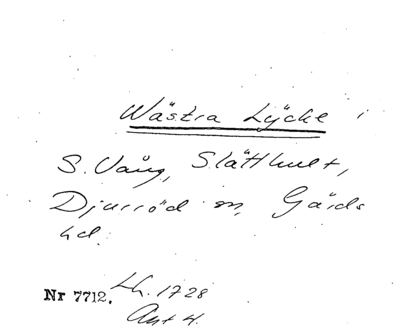 Wästra Lÿcke
S. Vång, Slätthult,
Djurröd sn, Gärds
hd.
Nr 7712. Lh. 1728
Ant 4.